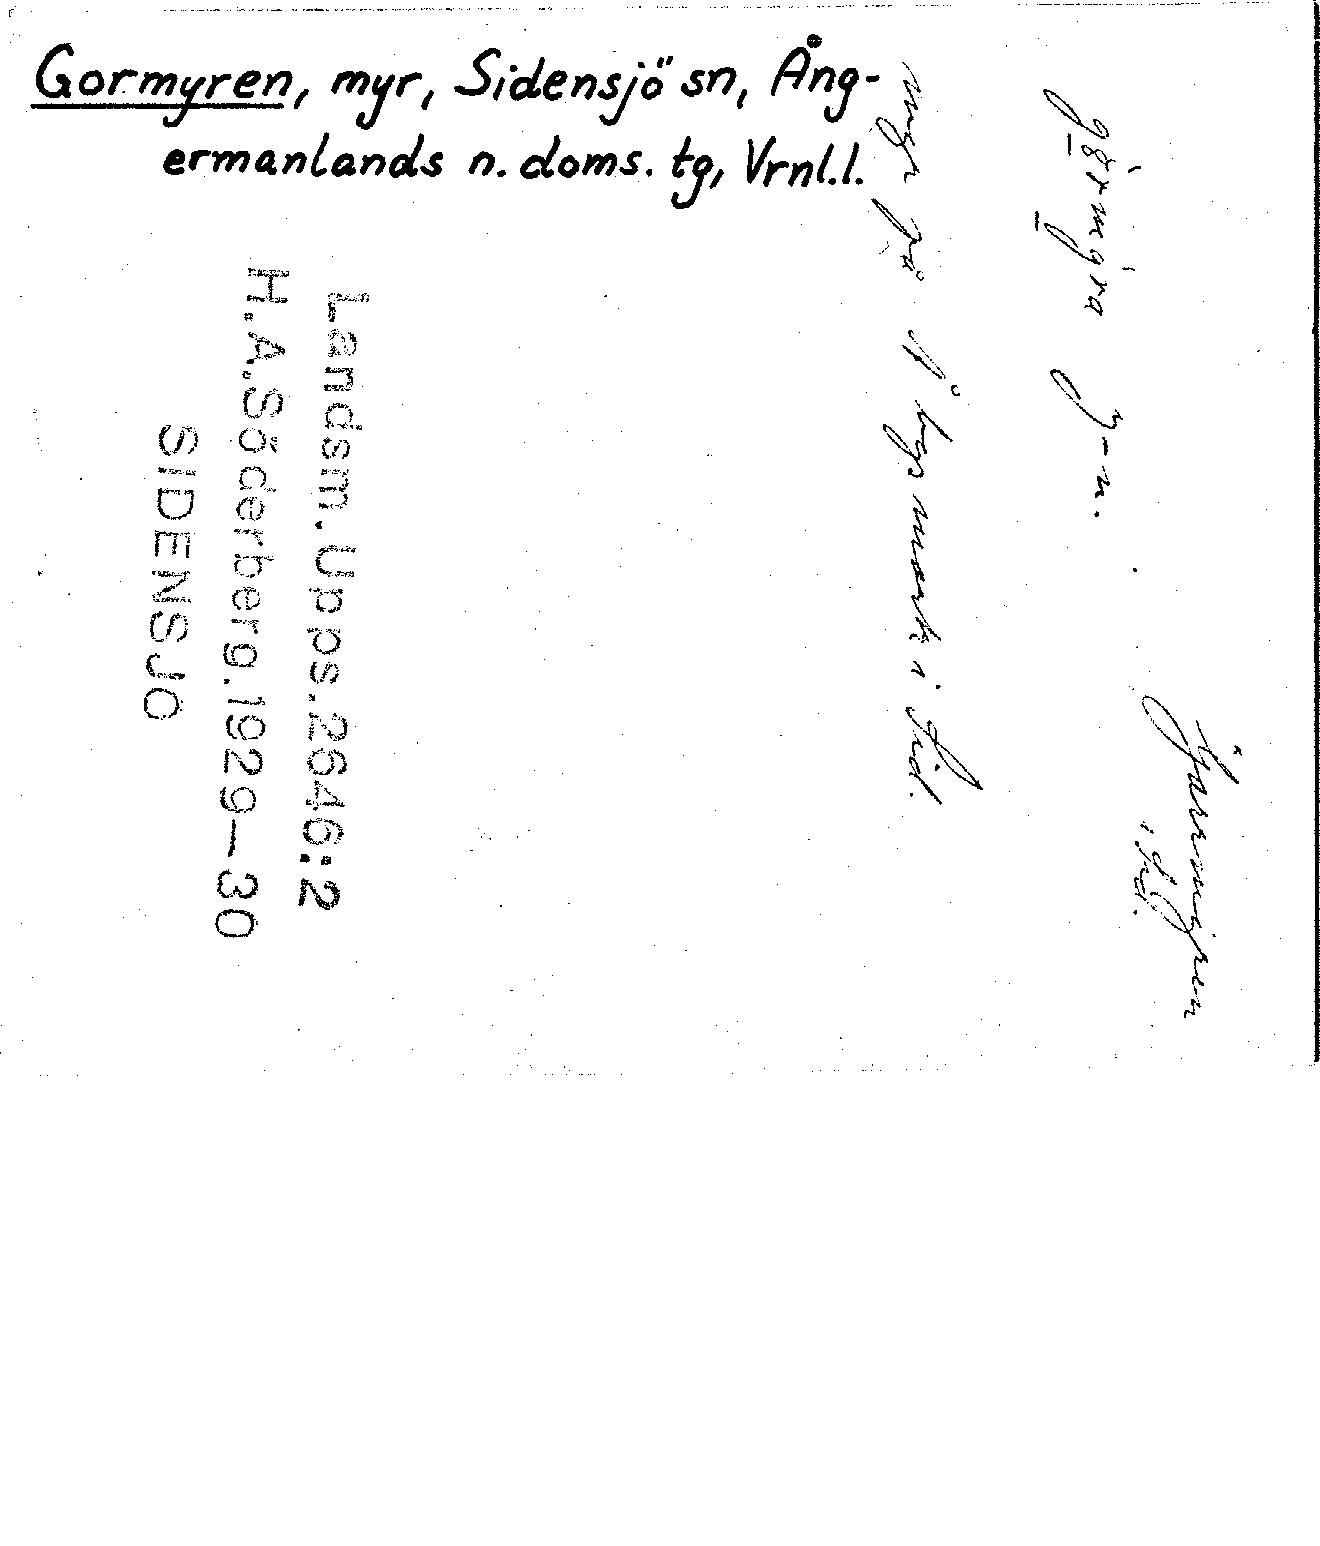 Gormyren, myr, Sidensjö sn, Ång-
ermanlands n. doms. tg, Vrnl.l.
i Sid.
y-n.
myr på Å bys mark i Sid.
Landsm. Upps. 2646:2
H.A. Söderberg. 1929-30
SIDENSJÖ